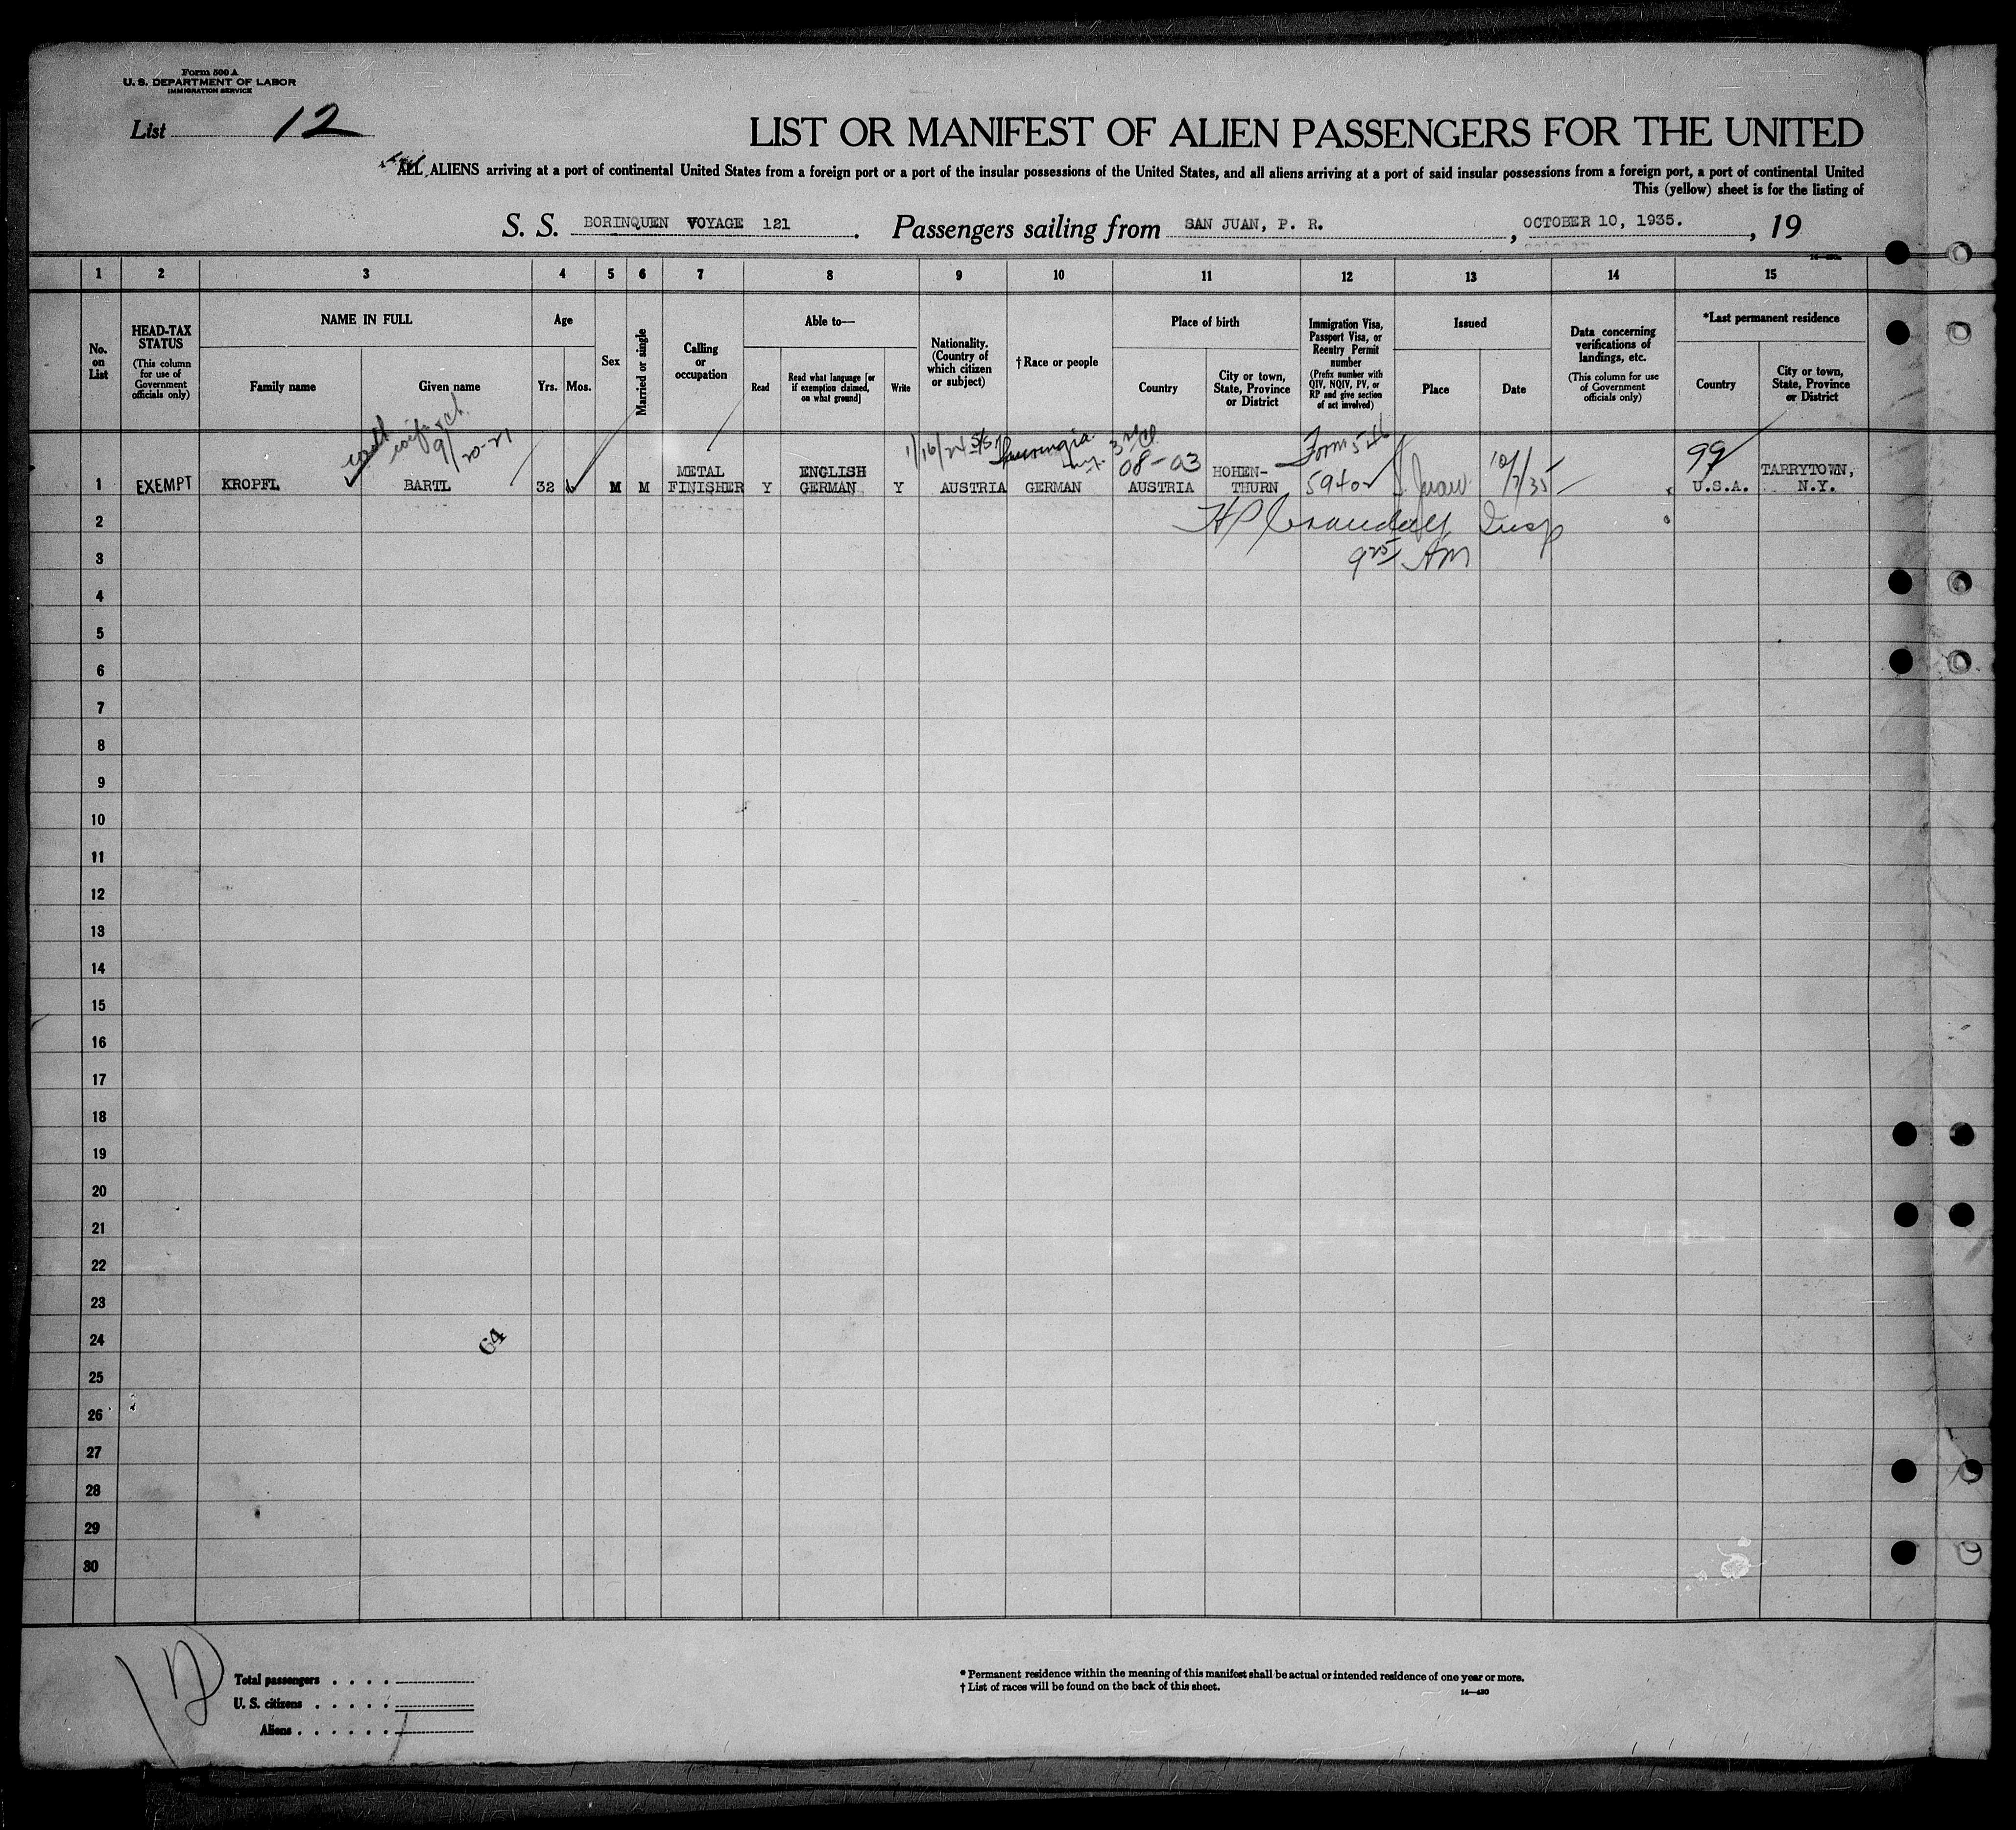 Form 500 A
U. S. DEPARTMENT OF LABOR
IMMIGRATION SERVICE
List 12
LIST OR MANIFEST OF ALIEN PASSENGERS FOR THE UNITED
ALL ALIENS arriving at a port of continental United States from a foreign port or a port of the insular possessions of the United States, and all aliens arriving at a port of said insular possessions from a foreign port, a port of continental United
This (yellow) sheet is for the listing of
S. S. BORINQUEN VOYAGE 121 . Passengers sailing from SAN JUAN, P. R. , OCTOBER 10, 1935. , 19
1 2 3 4 5 6 7 8 9 10 11 12 13 14 15
No. on List
HEAD-TAX STATUS
(This column for use of Government officials only)
NAME IN FULL
Family name
Given name
Age
Yrs. Mos.
Sex
Married or single
Calling or occupation
Able to—
Read
Read what language [or if exemption claimed, on what ground]
Write
Nationality. (Country of which citizen or subject)
† Race or people
Place of birth
Country
City or town, State, Province or District
Immigration Visa, Passport Visa, or Reentry Permit number
(Prefix number with QIV, NQIV, PV, or RP and give section of act involved)
Issued
Place
Date
Data concerning verifications of landings, etc.
(This column for use of Government officials only)
*Last permanent residence
Country
City or town, State, Province or District
9/20-21
1/16/24 S/S 3rd Cl
08-03
Form 546
99
METAL ENGLISH HOHEN- TARRYTOWN,
1 EXEMPT KROPFL BARTL 32 M M FINISHER Y GERMAN Y AUSTRIA GERMAN AUSTRIA THURN 59402 S. Juan 10/7/35 U.S.A. N.Y.
2 H P Crandall Insp
3 9 25 AM
4
5
6
7
8
9
10
11
12
13
14
15
16
17
18
19
20
21
22
23
24
64
25
26
27
28
29
30
12
Total passengers
U. S. citizens
Aliens 1
* Permanent residence within the meaning of this manifest shall be actual or intended residence of one year or more.
† List of races will be found on the back of this sheet.
14—430